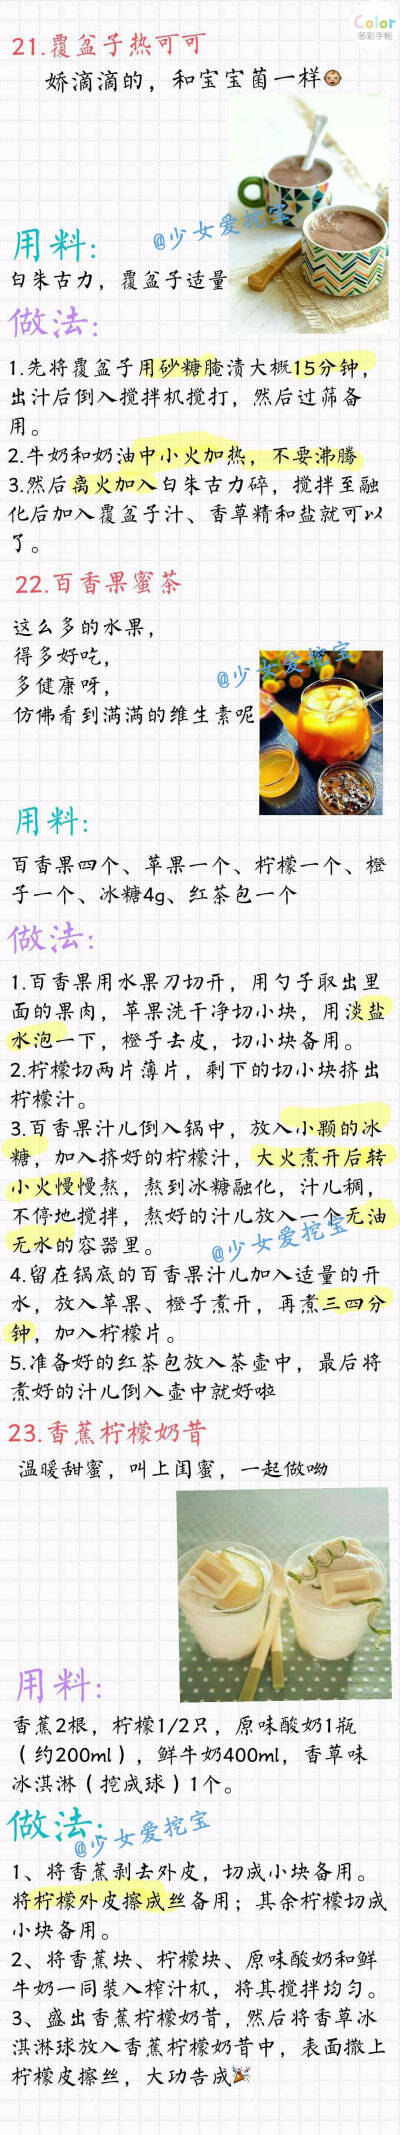 Color
多彩手帐
21.覆盆子热可可
娇滴滴的，和宝宝菌一样
@少女爱挖宝
用料：
白朱古力，覆盆子适量
做法：
1.先将覆盆子用砂糖腌渍大概15分钟，
出汁后倒入搅拌机搅打，然后过筛备
用。
2.牛奶和奶油中小火加热，不要沸腾
3.然后离火加入白朱古力碎，搅拌至融
化后加入覆盆子汁、香草精和盐就可以
了。
22.百香果蜜茶
这么多的水果，
得多好吃，
多健康呀，
仿佛看到满满的维生素呢
@少女爱挖宝
用料：
百香果四个、苹果一个、柠檬一个、橙
子一个、冰糖4g、红茶包一个
做法：
1.百香果用水果刀切开，用勺子取出里
面的果肉，苹果洗干净切小块，用淡盐
水泡一下，橙子去皮，切小块备用。
2.柠檬切两片薄片，剩下的切小块挤出
柠檬汁。
3.百香果汁儿倒入锅中，放入小颗的冰
糖，加入挤好的柠檬汁，大火煮开后转
小火慢慢熬，熬到冰糖融化，汁儿稠，
不停地搅拌，熬好的汁儿放入一个无油
无水的容器里。
@少女爱挖宝
4.留在锅底的百香果汁儿加入适量的开
水，放入苹果、橙子煮开，再煮三四分
钟，加入柠檬片。
5.准备好的红茶包放入茶壶中，最后将
煮好的汁儿倒入壶中就好啦
23.香蕉柠檬奶昔
温暖甜蜜，叫上闺蜜，一起做呦
用料：
香蕉2根，柠檬1/2只，原味酸奶1瓶
（约200ml），鲜牛奶400ml，香草味
冰淇淋（挖成球）1个。
做法：
@少女爱挖宝
1、将香蕉剥去外皮，切成小块备用。
将柠檬外皮擦成丝备用；其余柠檬切成
小块备用。
2、将香蕉块、柠檬块、原味酸奶和鲜
牛奶一同装入榨汁机，将其搅拌均匀。
3、盛出香蕉柠檬奶昔，然后将香草冰
淇淋球放入香蕉柠檬奶昔中，表面撒上
柠檬皮擦丝，大功告成